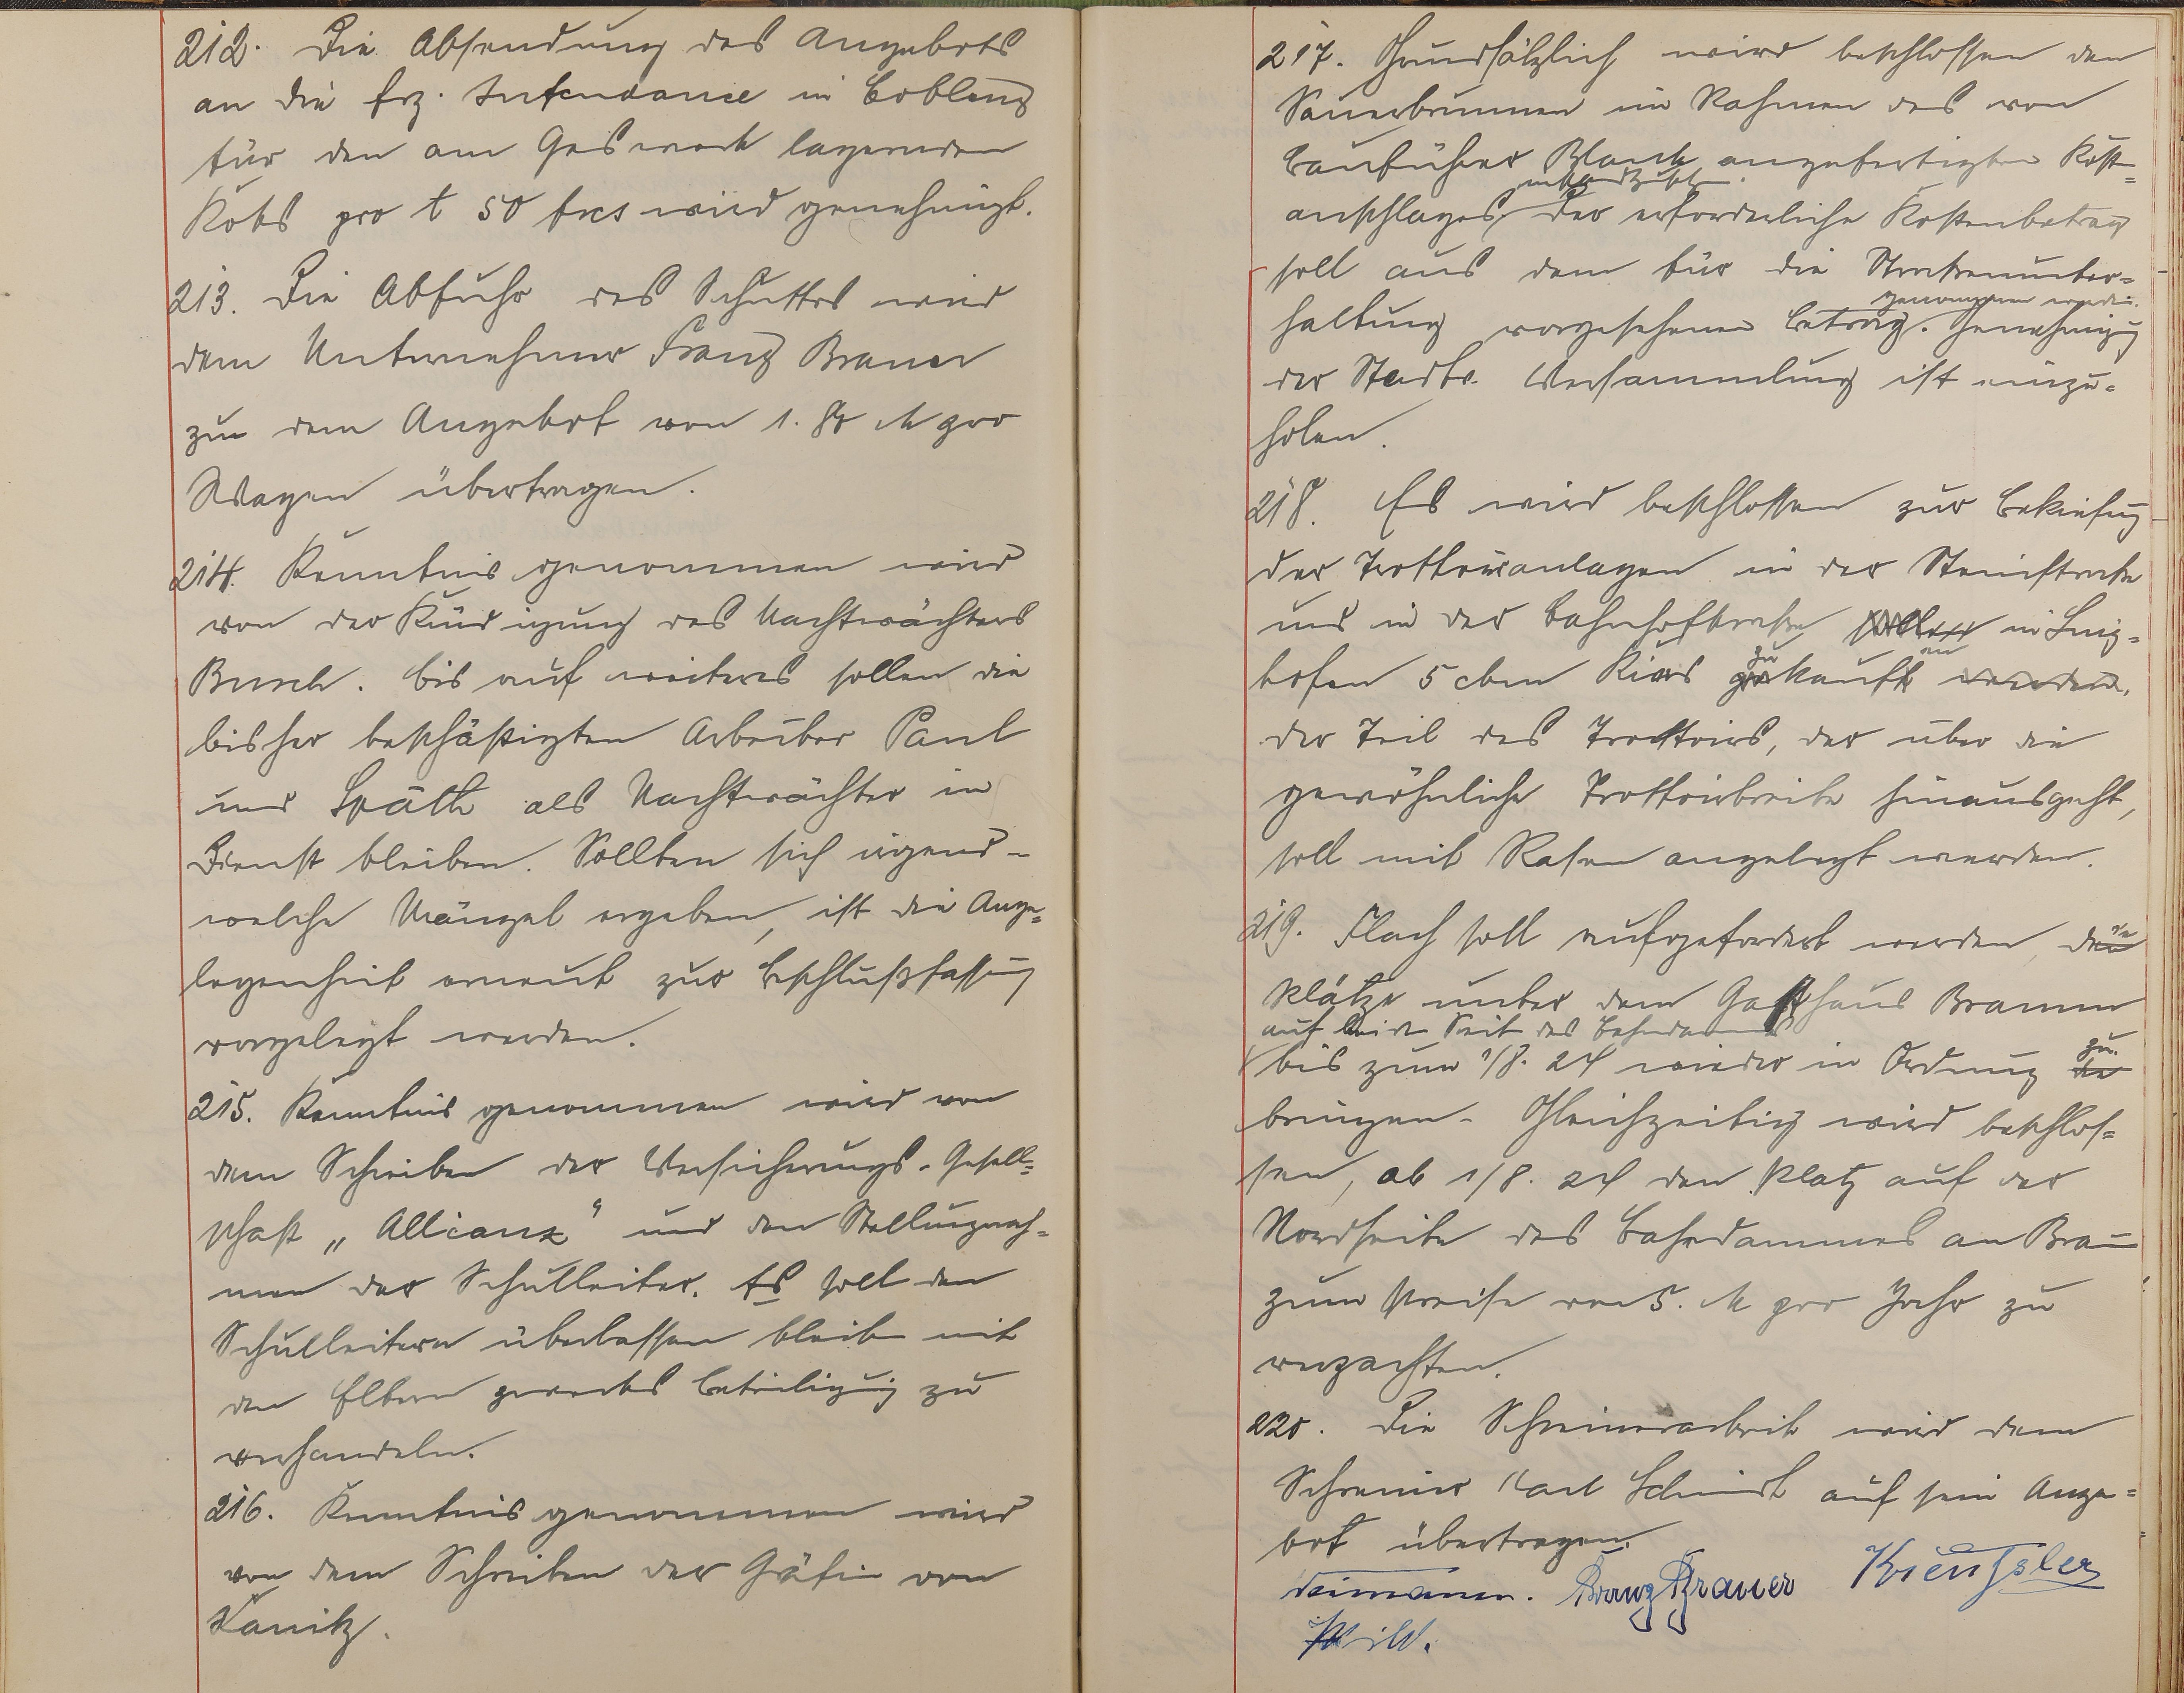 212. Die Absendung des Angebots
an die frz. Intendance in Coblenz
für den am Gaswerk lagernden
Koks pro t 50 frcs wird genehmigt.
213. Die Abfuhr des Schuttes wird
dem Unternehmer Franz Brauer
zu dem Angebot von 1.80 M pro
Wagen übertragen.
214. Kenntnis genommen wird
von der Kündigung des Nachtwächters
Busch. Bis auf weiteres sollen die
bisher beschäftigten Arbeiter Paul
und Späth als Nachtwächter im
Dienst bleiben. Sollten sich irgend-
welche Mängel ergeben, ist die Ange-
legenheit erneut zur Beschlußfassung
vorgelegt werden.
215. Kenntnis genommen wird von
dem Schreiben der Versicherungs-Gesell-
schaft „Allianz“ und den Stellungnah-
men der Schulleiter. Es soll den
Schulleitern überlassen bleiben mit
den Eltern zwecks Beteiligung zu
verhandeln.
216. Kenntnis genommen wird
von dem Schreiben der Gräfin von
Kanitz.
217. Grundsätzlich wird beschlossen den
Sauerbrunnen im Rahmen des von
Bauführer Blank angefertigten Kost-
anschlages. Der erforderliche Kostenbetrag
soll aus dem für die Straßenunter-
genommen werden.
haltung vorgesehenen Betrag. Genehmigung
der Stadtv. Versammlung ist einzu-
holen.
218. Es wird beschlossen zur Bekiesung
der Trottoiranlagen in der Steinstraße
und in der Bahnhofstraße sollen in
hofen 5 cbm Kies zu kaufen werden.
Der Teil des Trottoirs, der über die
gewöhnliche Trottoirbreite hinausgeht,
soll mit Rasen angelegt werden.
219. Flach soll aufgefordert werden, die
Plätze unter dem Gasthaus Bramm
auf beiden Seit des Bahndammes
bis zum 1/8. 24 wieder in Ordnung zu
bringen. Gleichzeitig wird beschlos-
sen, ab 1/8. 24 den Platz auf der
Nordseite des Bahndammes an Brau
zum Preise von 5. M pro Jahr zu
verpachten.
220. Die Schreinerarbeit wird dem
Schreiner Karl Schmidt auf sein Ange-
bot übertragen.
Franz Brauer
Wild.